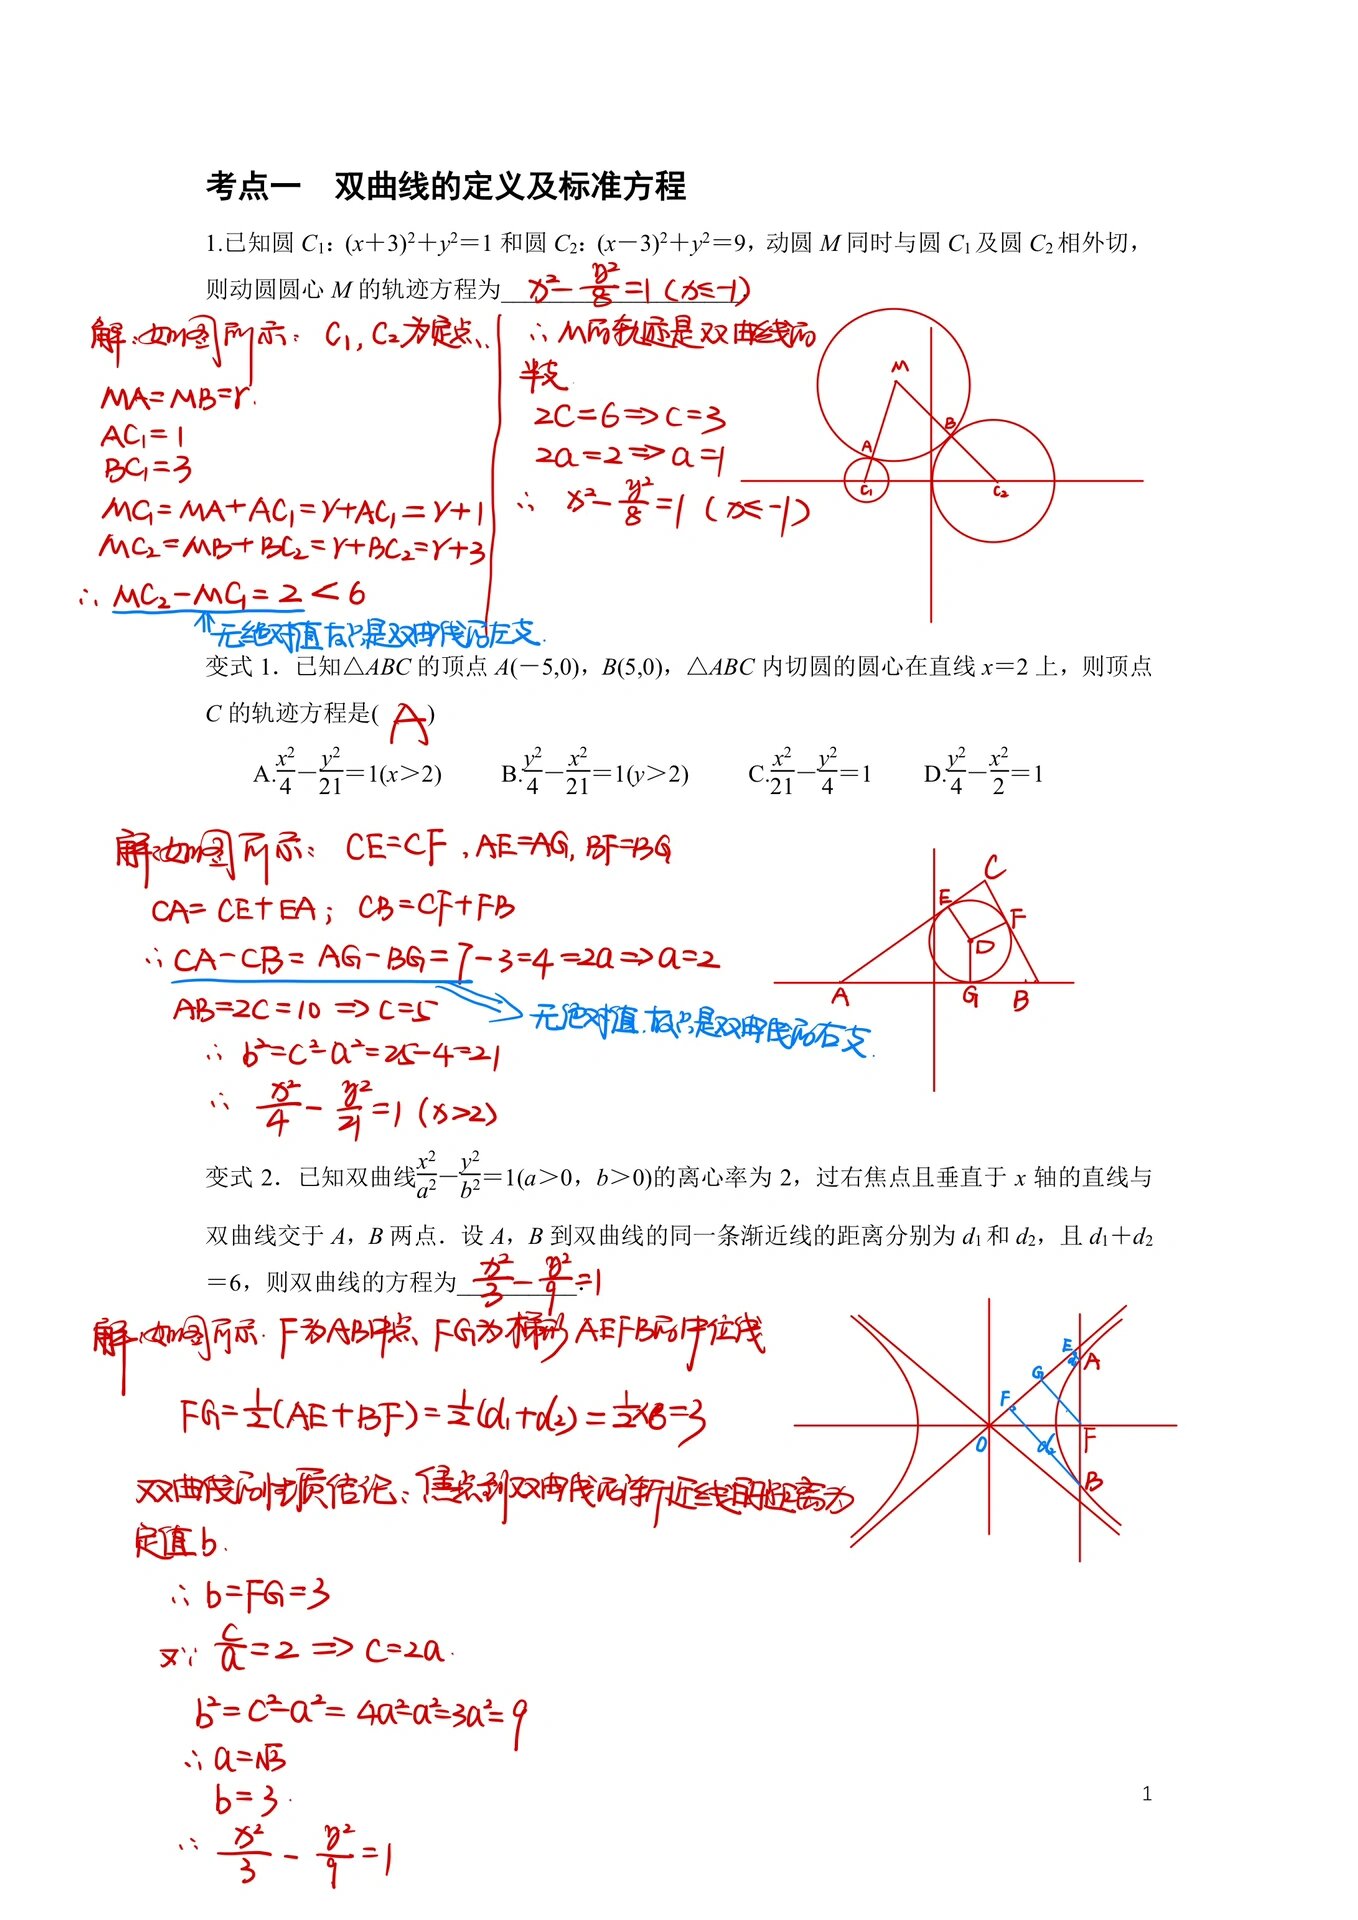 考点一 双曲线的定义及标准方程
1.已知圆 C₁：(x＋3)²＋y²＝1 和圆 C₂：(x－3)²＋y²＝9，动圆 M 同时与圆 C₁ 及圆 C₂ 相外切，
则动圆圆心 M 的轨迹方程为 x²－y²/8＝1 (x≤-1)
解：如图所示：C₁，C₂为定点、
MA＝MB＝r.
AC₁＝1
BC₁＝3
MC₁＝MA＋AC₁＝r＋AC₁＝r＋1
MC₂＝MB＋BC₂＝r＋BC₂＝r＋3
∴ MC₂－MC₁＝2＜6
无绝对值故只是双曲线的左支.
∴ M的轨迹是双曲线的
半支
2C＝6⇒C＝3
2a＝2⇒a＝1
∴ x²－y²/8＝1 (x≤-1)
M
A
B
C₁
C₂
变式 1．已知△ABC 的顶点 A(－5,0)，B(5,0)，△ABC 内切圆的圆心在直线 x＝2 上，则顶点
C 的轨迹方程是( A )
A.x²/4－y²/21＝1(x＞2) B.y²/4－x²/21＝1(y＞2) C.x²/21－y²/4＝1 D.y²/4－x²/2＝1
解：如图所示：CE＝CF，AE＝AG，BF＝BG
CA＝CE＋EA；CB＝CF＋FB
∴ CA－CB＝AG－BG＝7－3＝4＝2a⇒a＝2
AB＝2C＝10⇒C＝5
无绝对值.故只是双曲线的右支.
∴ b²＝C²－a²＝25－4＝21
∴ x²/4－y²/21＝1 (x>2)
C
E
F
D
A
G
B
变式 2．已知双曲线x²/a²－y²/b²＝1(a＞0，b＞0)的离心率为 2，过右焦点且垂直于 x 轴的直线与
双曲线交于 A，B 两点．设 A，B 到双曲线的同一条渐近线的距离分别为 d₁ 和 d₂，且 d₁＋d₂
＝6，则双曲线的方程为 x²/3－y²/9＝1 .
解：如图所示.F为AB中点、FG为梯形AEFB的中位线
FG＝½(AE＋BF)＝½(d₁＋d₂)＝½×6＝3
双曲线的性质结论：焦点到双曲线的渐近线的距离为
定值b.
∴ b＝FG＝3
又∵ C/a＝2⇒C＝2a.
b²＝C²－a²＝4a²－a²＝3a²＝9
∴ a＝√3
b＝3.
∴ x²/3－y²/9＝1
E
A
G
F
O
d₂
F
B
1